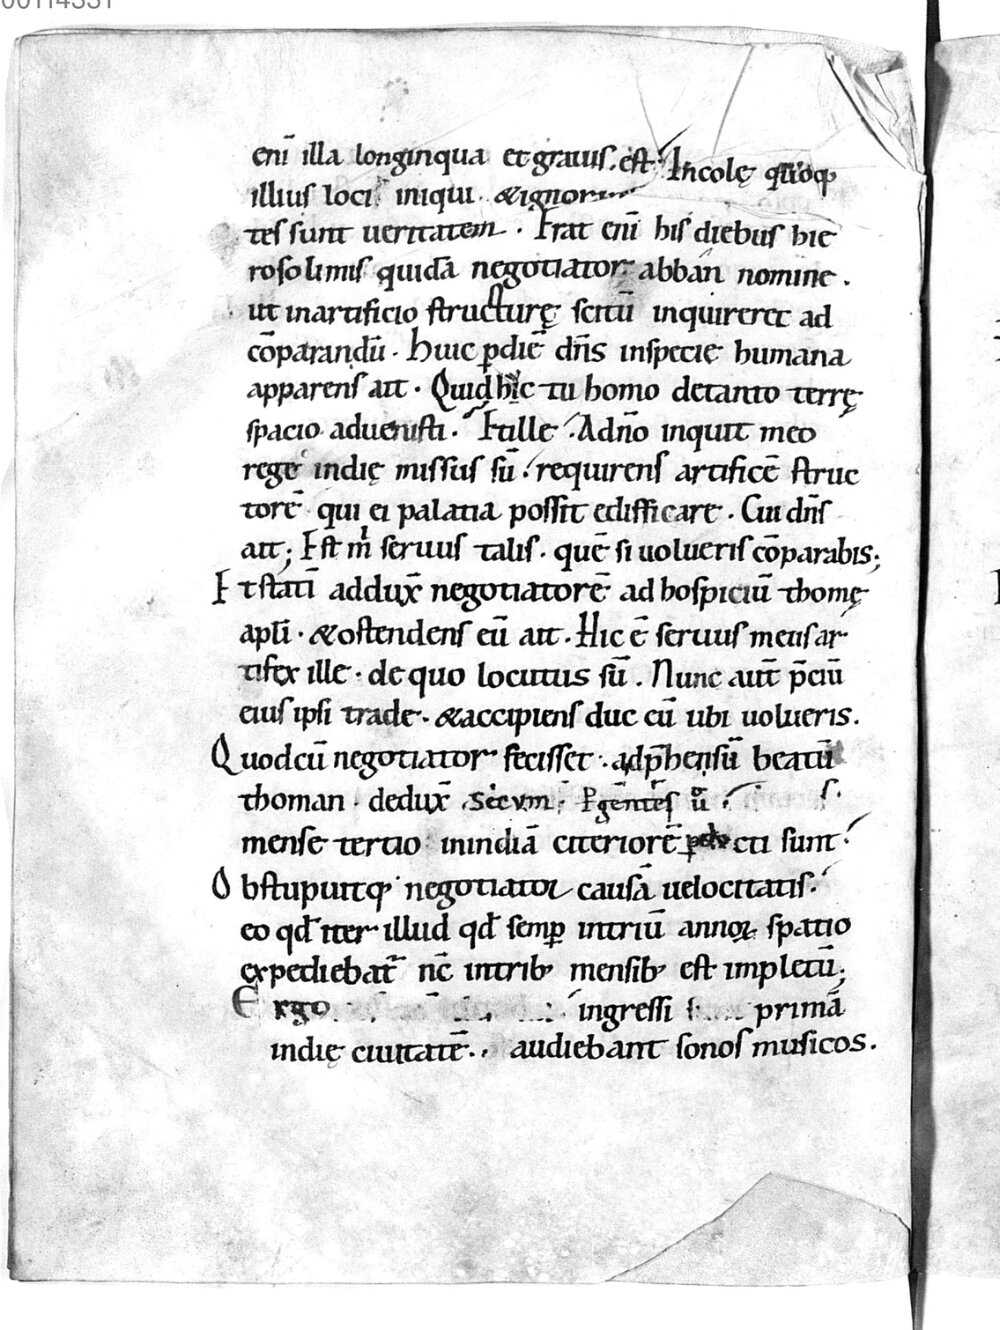 00114331
enī illa longinqua et grauis. est; Incolę quoq
illius loci iniqui. & ignoran
tes sunt ueritatem. Erat enī his diebus hie
rosolimis quidā negotiator abban nomine.
ut in artificio structurę scitū inquireret ad
cōparandū. Huic p̱ diē dn̄s in specie humana
apparens ait. Quid hic tu homo de tanto terrę
spacio aduenisti. Ille. A dn̄o inquit meo
rege indię missus sū. requirens artificē struc
torē qui ei palatia possit edifficare. Cui dn̄s
ait; Est m̍ seruus talis. quē si uolueris cōparabis;
Et statī addux̄ negotiatorē ad hospiciū thomę
apl̄i. & ostendens eū ait. Hic ē seruus meus ar
tifex ille. de quo locutus sū. Nunc aut̄ p̄ciū
eius ipsi trade. & accipiens duc eū ubi uolueris.
Quod cū negotiator fecisset. adp̄hensū beatū
thoman. dedux̄ secum. P̱gentes ū
mense tertio in indiā citeriorē uecti sunt.
Obstupuitq negotiator causā uelocitatis.
eo qđ iter illud qđ semp̱ in triū annoꝝ spatio
expediebat̄ nc̄ in trib; mensib; est impletū;
Ergo ingressi primā
indię ciuitatē. audiebant sonos musicos.